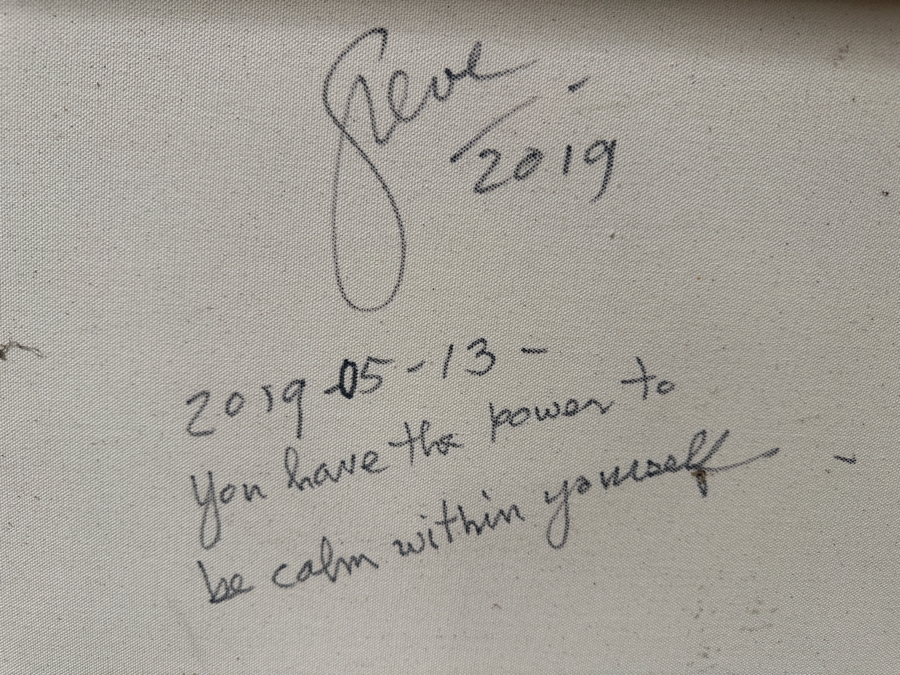 Steve
2019
2019-05-13-
You have the power to
be calm within yourself